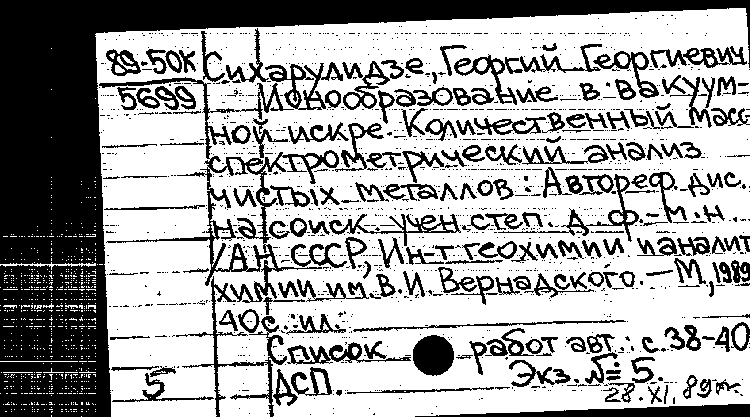 89-50К Сихарулидзе, Георгий Георгиевич
5699 Ионообразование в вакуум-
ной искре. Количественный масс-
спектрометрический анализ
чистых металлов : Автореф. дис.
на соиск. учен. степ. д. ф.-м. н.
/АН СССР, Ин-т геохимии и аналит.
химии им. В.И. Вернадского. — М., 1989
40с. : ил.
Список работ авт.: с. 38-40
5 ДСП. Экз. № 5.
28.XI.89